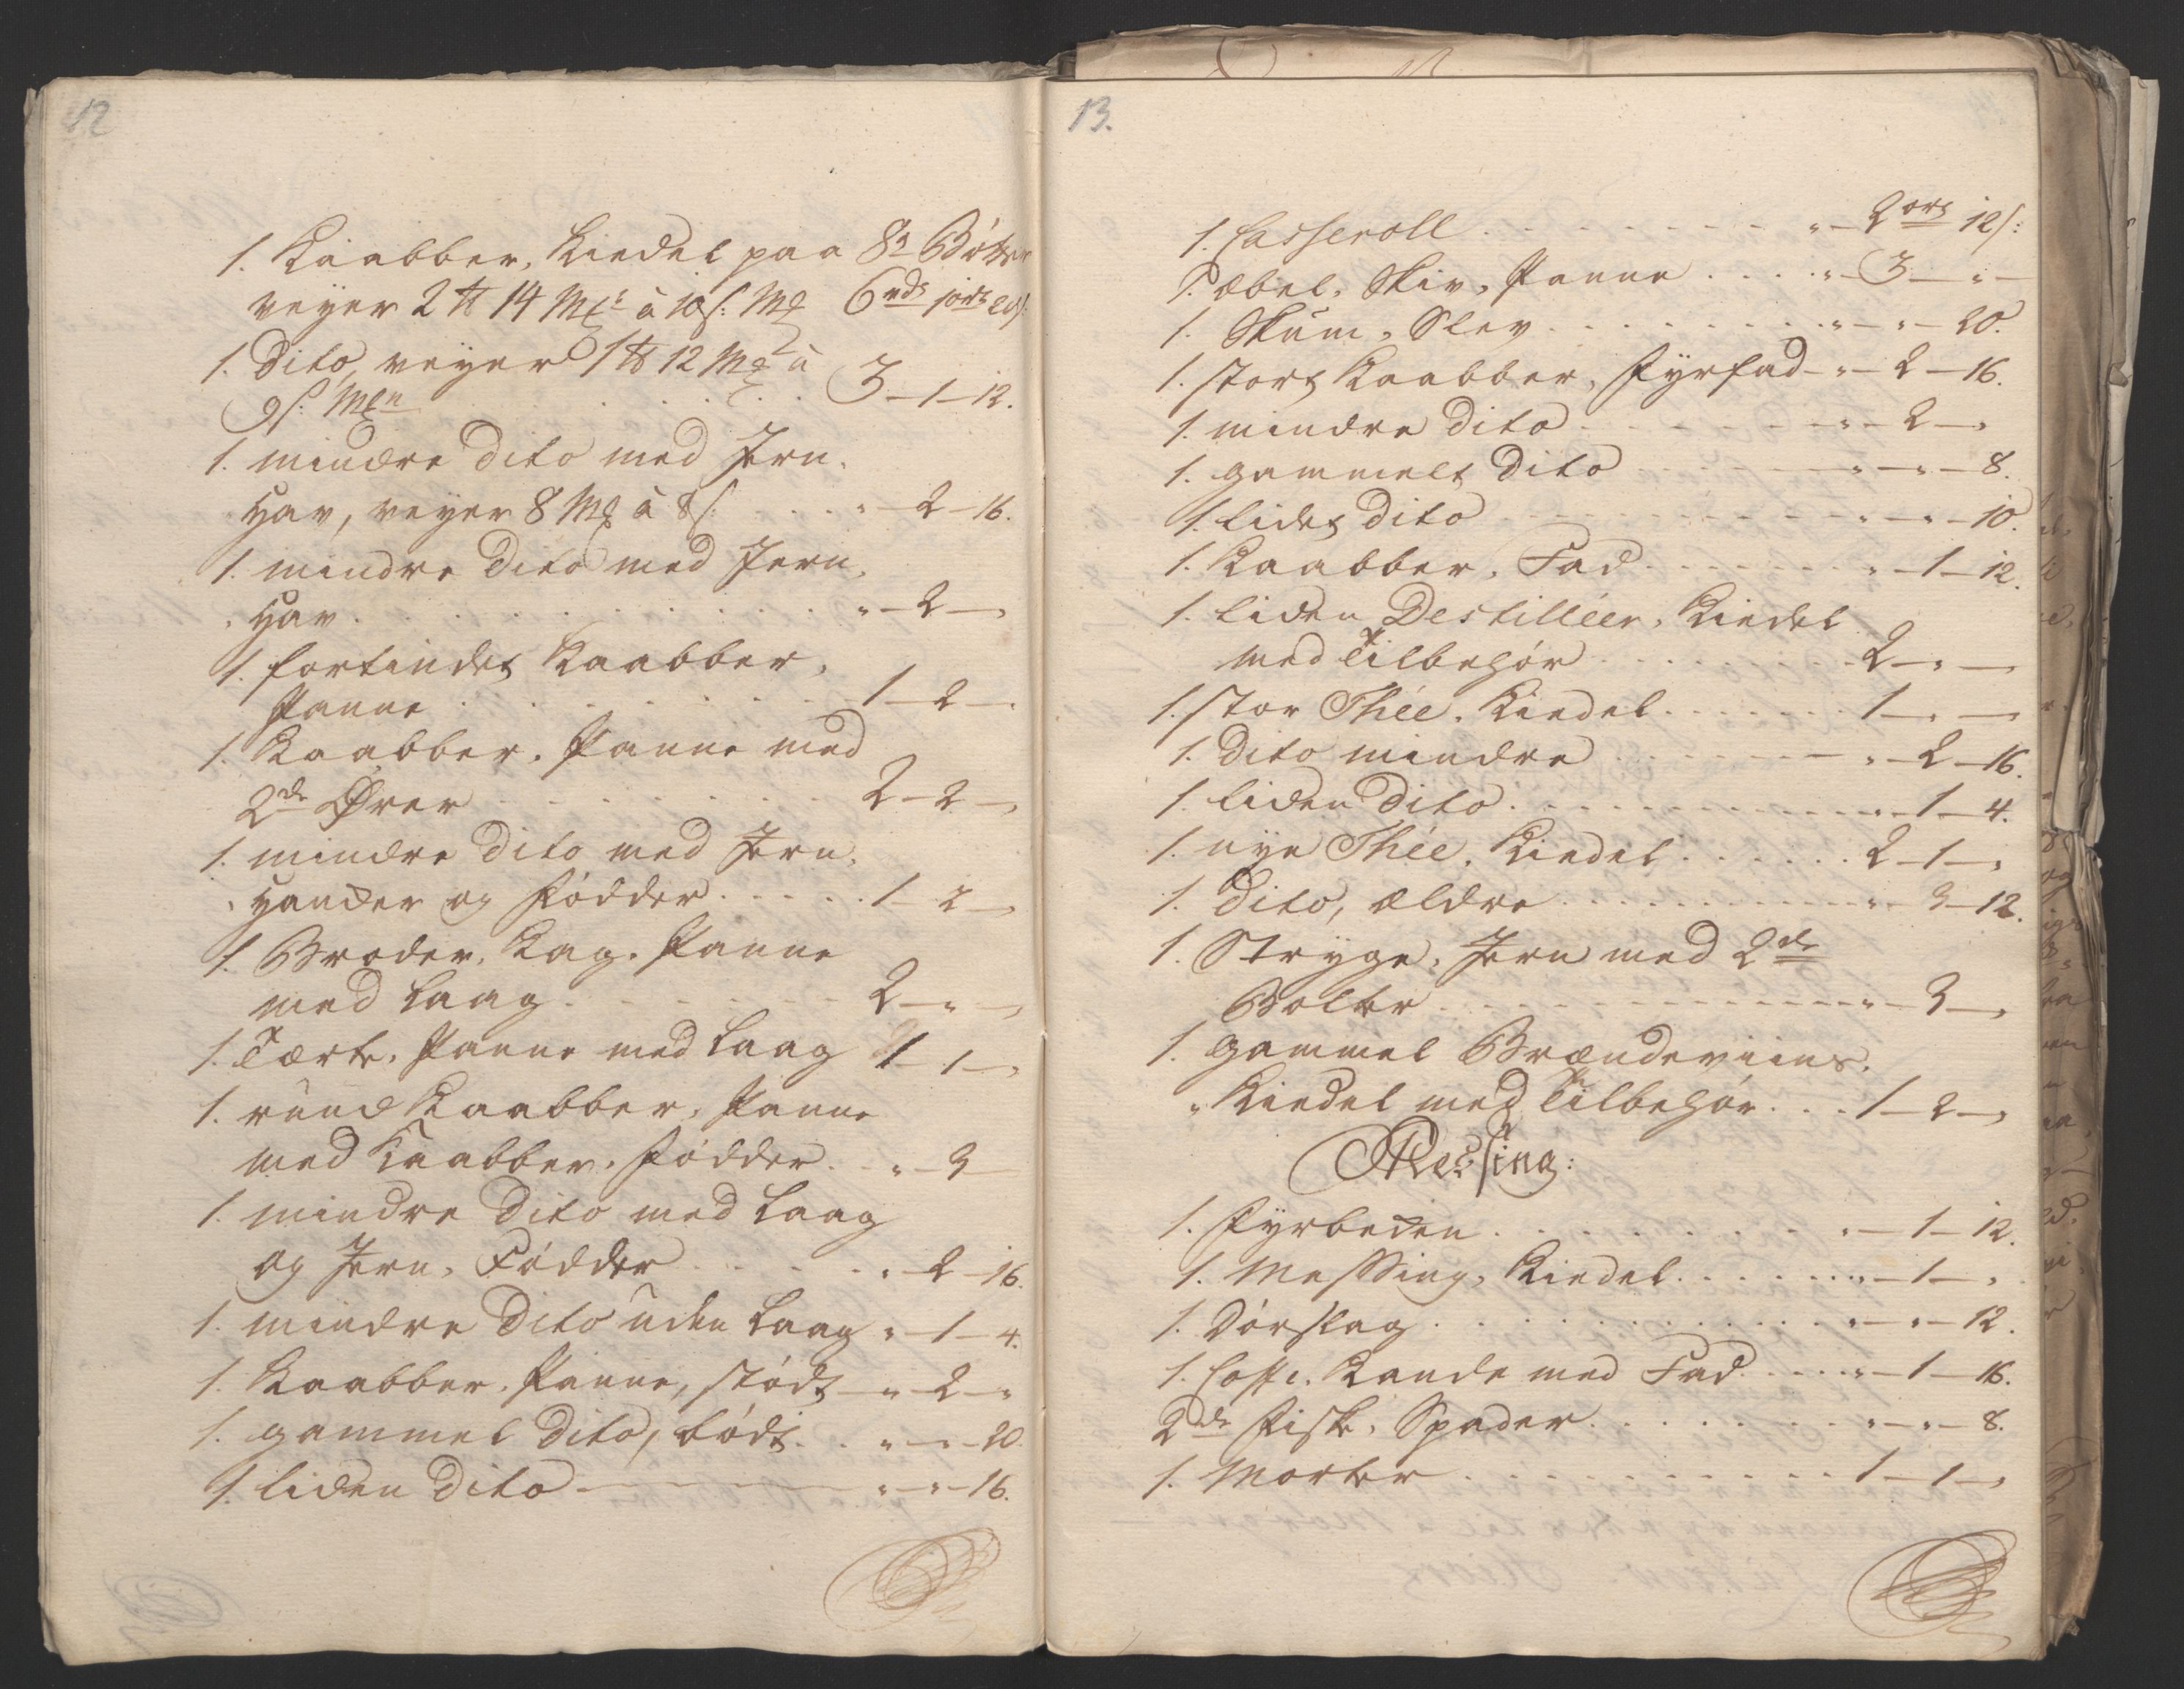 12
1. Kaabber, Kiedel paa 8te Bøtter
veyer 2 ℔ 14 Mk: à 10 s: Mk 6 rds 1 ort 20 s:
1. Dito, veyer 1 ℔ 12 Mk à
9 s: Mkn . . . . . . 3–1–12.
1. mindre Dito med Jern,
Hav, veyer 8 Mk à 8 s: . . . „–2–16.
1. mindre Dito med Jern,
Hav . . . . . . „–2–„
1. fortindet Kaabber,
Panne . . . . . . 1–2–„
1. Kaabber, Panne med
2de Ører . . . . . . 2–2–„
1. mindre Dito med Jern,
Hander og Födder . . . . 1–2–„
1. Broder, Kag, Panne
med Laag . . . . . . 2–„–„
1. Tærte, Panne med Laag 1–1–„
1. rund Kaabber, Panne
med Kaabber, Födder . . „–3
1. mindre Dito med Laag
og Jern, Födder . . . . „–2–16.
1. mindre Dito uden Laag „–1–4.
1. Kaabber, Panne, stödt „–2–„
1. gammel Dito, bödt . . „–„–20
1. liden Dito „–„–16.
13.
1. Casseroll . . . . . . „–2 ort 12 s:
1. Æbel, Skiv, Panne . . . . „–3–„–
1. Skum, Slev . . . . . . „–„–20.
1. stort Kaabber, Fyrfad „–2–16.
1. mindre Dito . . . . . . „–2–„
1. gammelt Dito . . . . . . „–„–8.
1. lidet Dito . . . . . . „–„–10.
1. Kaabber, Fad . . . . . . „–1–12.
1. liden Destilléer, Kiedel
med Tilbehör . . . . . . 2–„–„
1. stor Thée, Kiedel . . . . . . 1–„–„
1. Dito mindre . . . . . . „–2–16.
1. liden Dito . . . . . . „–1–4.
1. nye Thée, Kiedel . . . . . . 2–1–„
1. Dito, ældre . . . . . . „–3–12.
1. Stryge, Jern med 2de
Bolter . . . . . . „–3–„
1. gammel Brændeviins,
Kiedel med Tilbehör . . . 1–2–„
Messing:
1. Fyrbeden . . . . . . „–1–12.
1. Messing, Kiedel . . . . . . „–1–„
1. Dörslag . . . . . . „–„–12.
1. Coffe, Kande med Fad . . . . „–1–16.
2de Fisk, Spader . . . . . . „–„–8.
1. Morter . . . . . . 1–1–„